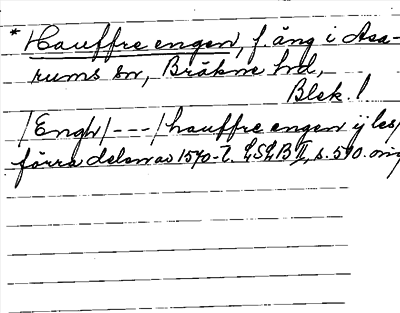 * Hauffre engen, f. äng i Asa-
rums sn, Bräkne hd,
Blek. l
/Engh/---/hauffre engen ij les/
förra delen av 1570-t. LSLB II, s. 590. orig